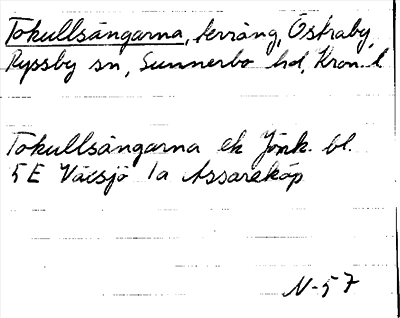 Tokullsängarna, terräng, Östraby,
Ryssby sn, Sunnerbo hd, Kron. l
Tokullsängarna ek Jönk. bl.
5E Växsjö 1a Assaraköp
N-57